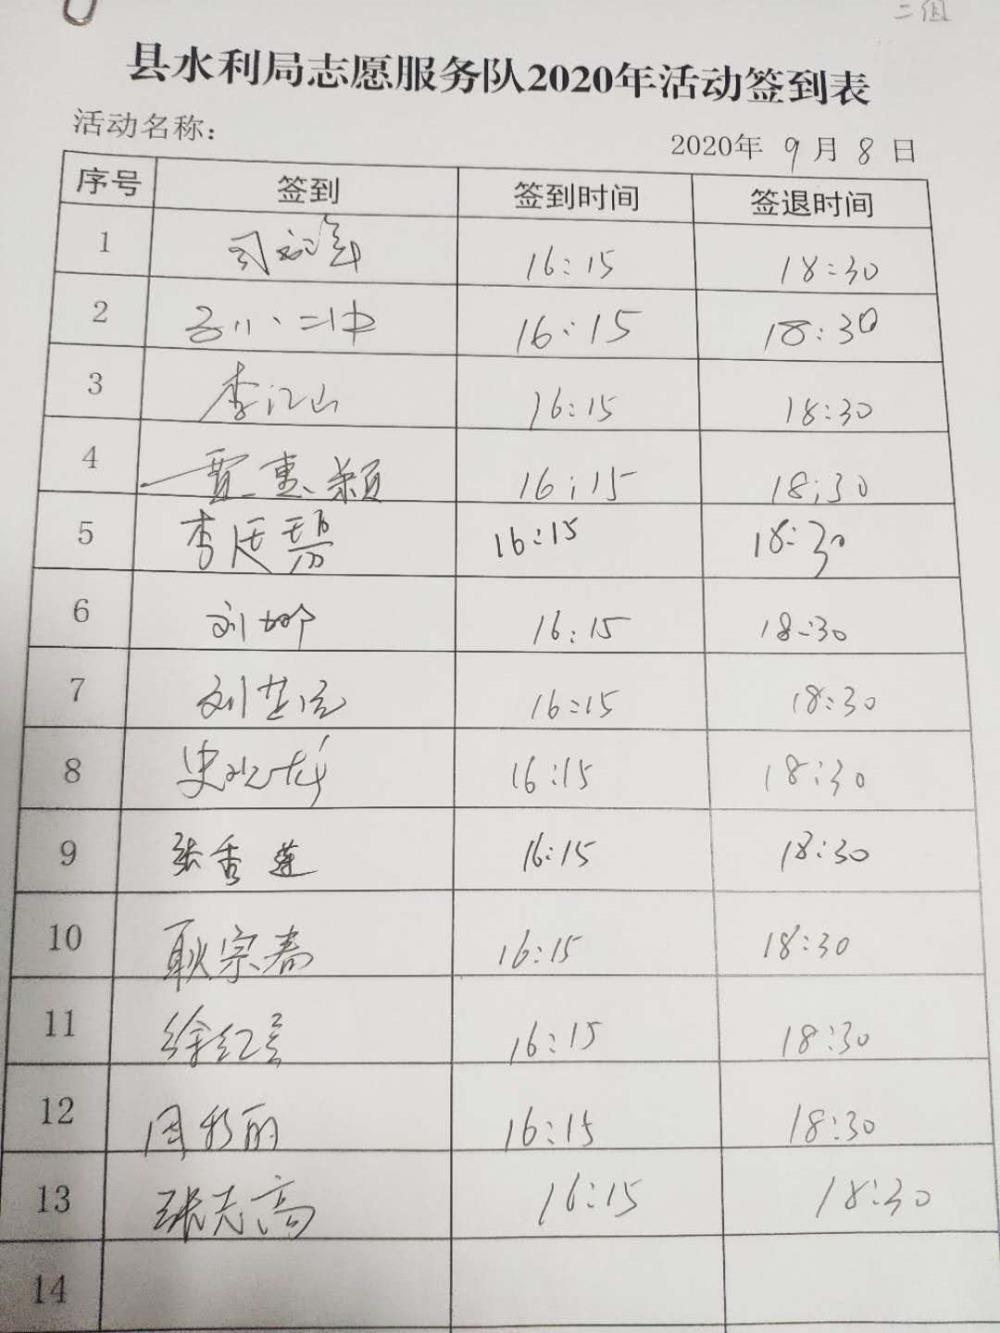 二组
县水利局志愿服务队2020年活动签到表
活动名称：
2020年 9 月 8 日
序号 签到 签到时间 签退时间
1 16:15 18:30
2 16:15 18:30
3 李江山 16:15 18:30
4 贾惠颖 16:15 18:30
5 李廷 16:15 18:30
6 刘娜 16:15 18:30
7 刘 16:15 18:30
8 史 16:15 18:30
9 张秀莲 16:15 18:30
10 耿宗春 16:15 18:30
11 徐红 16:15 18:30
12 周 丽 16:15 18:30
13 张志高 16:15 18:30
14